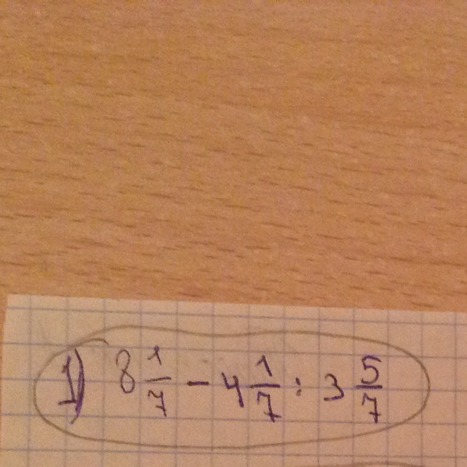 1) 8 1/7 - 4 1/7 : 3 5/7